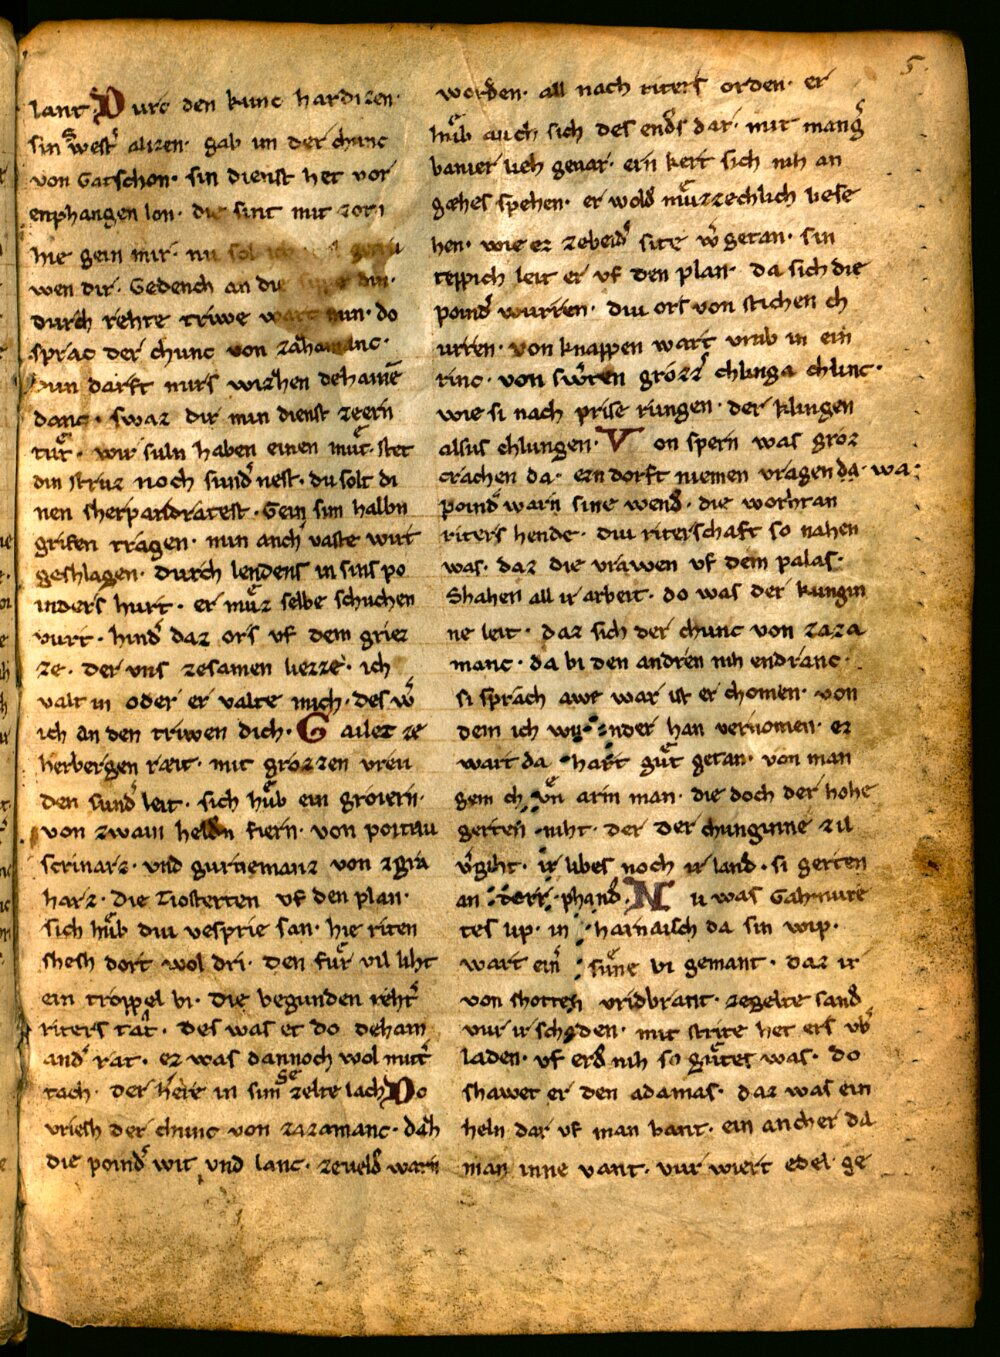 5
lant. Durc den kunc hardizen.
sin swestr alizen. gab im der chunc
von Gatschon. sin dienst het vor
enphangen lon. die sint mit zorn
hie gein mir. nu sol ich
wen dir. Gedench an die sippe din.
durch rehte triwe wart min. do
sprac der chunc von zahamanc.
Dun darft mirs wizhen dehaine
danc. swaz dir min dienst zeern
tuͦt. wir suln haben einen muͦt. stet
din struz noch sundr nest. du solt di
nen sherpandratest. Gein sim halbn
grifen tragen. min anch vaste wirt
geshlagen. durch lendens in sins po
inders hurt. er muͦz selbe schuchen
vurt. hindr daz ors vf dem griez
ze. der vns zesamen liezze. ich
valt in oder er valte mich. des wr
ich an den triwen dich. Gailet ze
herbergen reͤit. mit grozzen vreu
den sundr leit. sich huͦb ein groiern.
von zwain heldn fiern. von portau
scrinarz. vnd gurnemanz von zgra
harz. die Tiosterten vf den plan.
sich huͦb diu vesprie san. hie riten
shesh dort wol dri. den fuͦr vil liht
ein troppel bi. die begunden rehtr
riters tat. des was et do deham
andr rat. ez was dannoch wol mittr
tach. der here in sim sezelte lach Do
vriesh der chunc von zazamanc. dah
die poindr wit vnd lanc. zeveldr warn
worden. all nach riters orden. er
huͦb auch sich des endrs dar. mit mangr
banier lieh gevar. ein kert sich nih an
gæhes spehen. er wold muͦzzechlich bese
hen. wie ez zebeidr site wr getan. sin
teppich leit er vf den plan. da sich die
poindr wurren. diu ors von stichen ch
urren. von knappen wart vmb in ein
rinc. von swrten grozzr chlinga chlinc.
wie si nach prise rungen. der klingen
alsus chlungen. Von spern was groz
crachen da. ern dorft niemen vragen da. wa.
poindr warn sine wendr. die worhtan
riters hende. diu riterschaft so nahen
was. daz die vrawen vf dem palas.
Shahen all ir arbeit. do was der kungin
ne leit. daz sich der chunc von zaza
manc. da bi den andren nih endranc.
si sprach awe war ist er chomen. von
dem ich wunder han vernomen. ez
wart da hart guͦt getan. von man
gem ch vn arm man. die doch der hohe
gerten niht. der der chunginne zil
vrgiht. ir libes noch ir land. si gerten
an derr phand. Nu was Gahmure
tes lip. in harnaisch da sin wip.
wart einr suͦne bi gemant. daz ir
von shotten vridbrant. zegelte sand
vur ir schaden. mit strite het ers vb
laden. vf erdr nih so guͦtes was. do
shawet er den adamas. daz was ein
helm dar vf man bant. ein ancher da
man inne vant. vur wiert edel ge